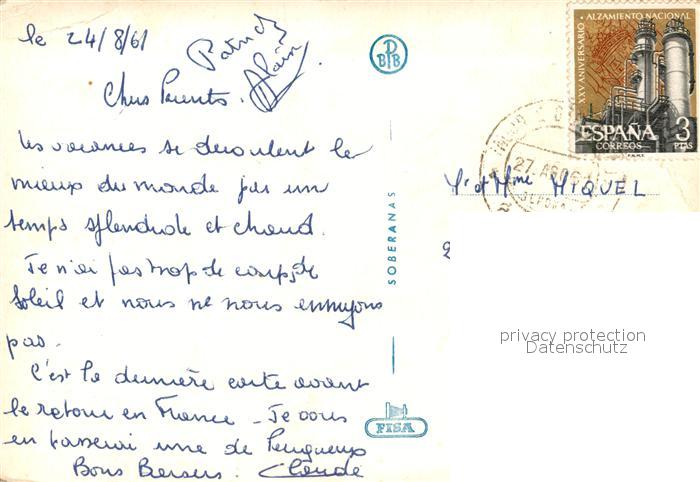 le 24/8/61
Patrick
Alain
Chers Parents.
Les vacances se deroulent le
mieux du monde par un
temps splendide et chaud.
Je n'ai pas trop de coups de
soleil et nous ne nous ennuyons
pas.
C'est la dernière carte avant
le retour en France - Je vous
en passerai une de Perigueux
Bons Baisers. Claude
BPB
SOBERANAS
FISA
XXV ANIVERSARIO · ALZAMIENTO NACIONAL
ESPAÑA
CORREOS
3
PTAS
F.N.M.T.
27. AGO 61
Mr et Mme MIQUEL
2
privacy protection
Datenschutz